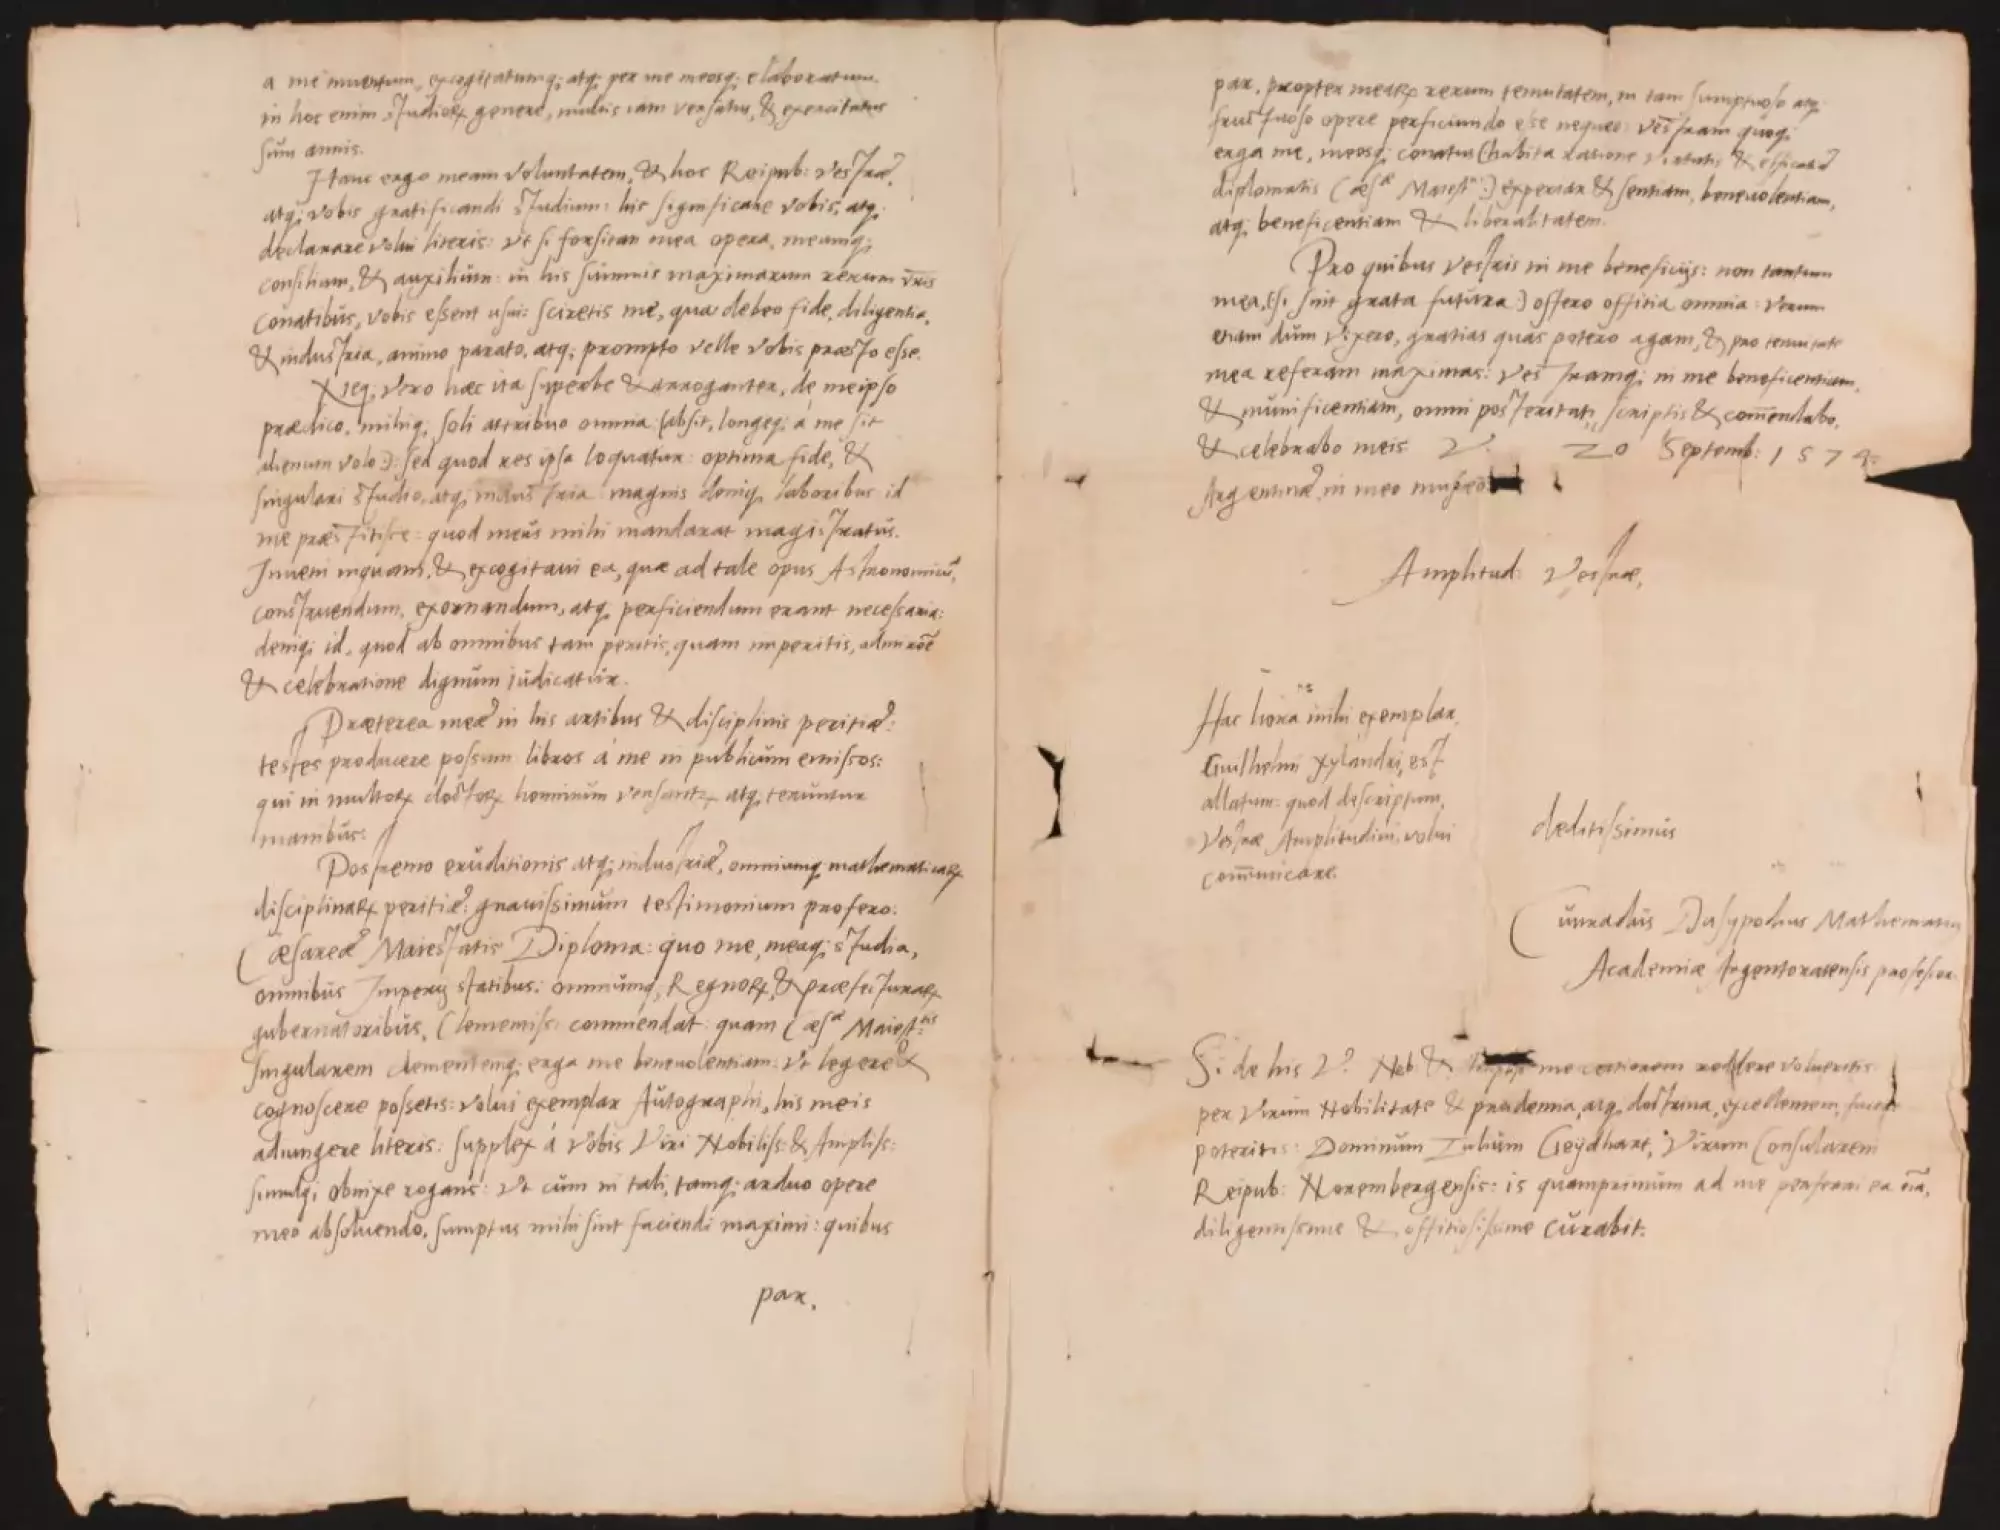 a me inventum, excogitatumq; atq; per me meosq; elaboratum.
in hoc enim studiorꝝ genere, multis iam versatus, & exercitatus
sum annis.
Hanc ergo meam voluntatem, & hoc Reipub: vestræ,
atq; vobis gratificandi studium: his significare vobis, atq;
declarare volui literis: vt si forsitan mea opera, meumq;
consilium, & auxilium: in his summis maximarum rerum vr̄is
conatibus, vobis essent usui: sciretis me, qua debeo fide, diligentia,
& industria, animo parato, atq; prompto velle vobis præsto esse.
Neq; vero hæc ita superbe & arroganter, de meipso
prædico, mihiq; soli attribuo omnia (absit, longeq; á me sit
alienum volo:) sed quod res ipsa loquatur: optima fide, &
singulari studio, atq; industria magnis deniq; laboribus id
me præstitisse: quod meus mihi mandarat magistratus.
Inveni inquam, & excogitavi ea, quæ ad tale opus Astronomicū,
construendum, exornandum, atq; perficiendum erant necessaria:
deniq; id, quod ab omnibus tam peritis, quam imperitis, admirōe
& celebratione dignum iudicatur.
Præterea meæ in his artibus & disciplinis peritiæ:
testes producere possum libros á me in publicum emissos:
qui in multorꝝ doctorꝝ hominum versantur atq; teruntur
manibus:
Postremo eruditionis atq; industriæ, omniumq; mathematicarꝝ
disciplinarꝝ peritiæ: gravissimum testimonium profero.
Cæsareæ Maiestatis Diploma: quo me, meaq; studia,
omnibus Imperij statibus: omniumq; Regnorꝝ, & præfecturarꝝ
gubernatoribus, Clementiss: commendat: quam Cæsæ Maiesttis
singularem clementemq; erga me benevolentiam: vt legere &
cognoscere possetis: volui exemplar Autographi, his meis
adiungere literis: supplex á vobis Viri Nobiliss: & Ampliss:
simulq; obnixe rogans: vt cùm in tali, tamq; arduo opere
meo absolvendo, sumptus mihi sint faciendi maximi: quibus
par,
par, propter mearꝝ rerum tenuitatem, in tam sumptuoso atq;
fructuoso opere perficiundo esse nequeo: vestram quoq;
erga me, meosq; conatus (habita ratione virtutis & efficaciæ
diplomatis Cæsæ Maiest:) experiar & sentiam, benevolentiam,
atq; beneficentiam & liberalitatem.
Pro quibus vestris in me beneficijs: non tantum
mea, (si sint grata futura:) offero offitia omnia: verum
etiam dum vixero, gratias quas potero agam, & pro tenuitate
mea referam maximas: vestramq; in me beneficentiam,
& munificentiam, omni posteritati, scriptis & com̄endabo,
& celebrabo meis V. 20 Septemb: 1574.
Argentinæ, in meo musæo
Amplitud: Vestræ,
Hac hora mihi exemplar
Guilhelmi Xylandri, est
allatum: quod descriptum,
Vestræ Amplitudini, volui
com̄unicare.
deditissimus
Cunradus Dasypodius Mathematum
Academiæ Argentoratensis professor.
Si de his V. Nob: & me certiorem reddere volueritis
per Virum Nobilitate & prudentia, atq; doctrina, excellentem, facere
poteritis: Dominum Iulium Geÿdhart, Virum Consularem
Reipub: Norembergensis: is quamprimum ad me perferri ea om̄ia,
diligentissime & offitiosissime curabit.